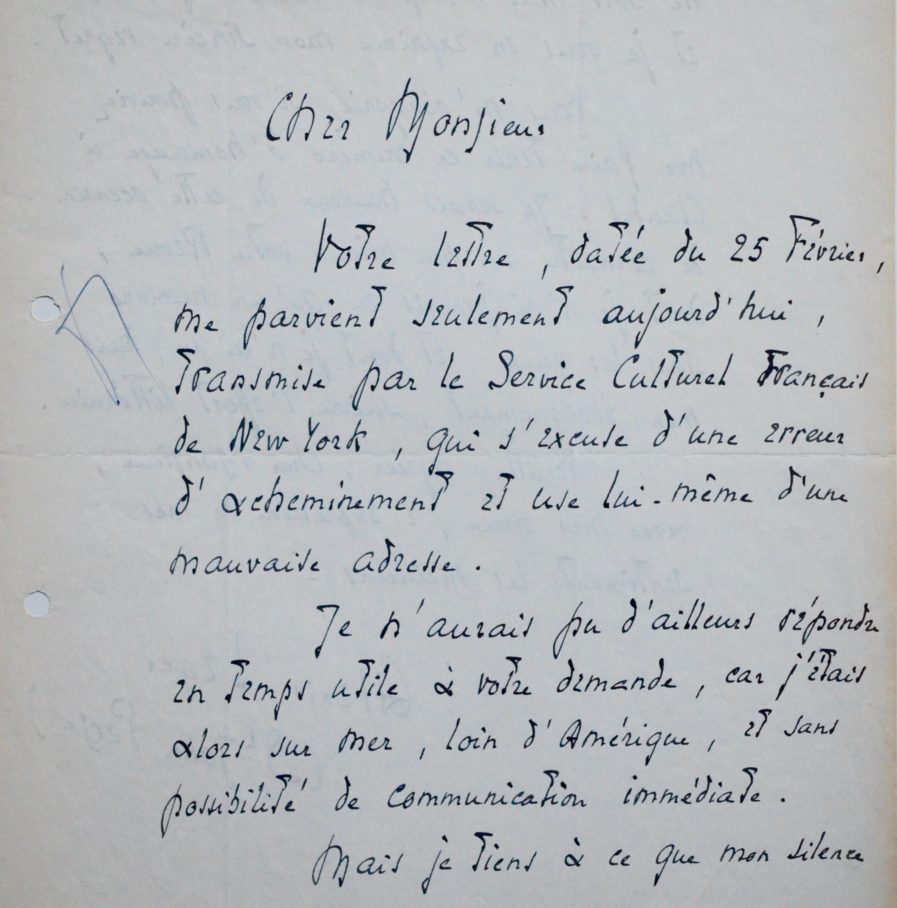 Cher Monsieur
Votre lettre, datée du 25 Février,
me parvient seulement aujourd'hui,
transmise par le Service Culturel Français
de New York, qui s'excuse d'une erreur
d'acheminement et use lui-même d'une
mauvaise adresse.
Je n'aurais pu d'ailleurs répondre
en temps utile à votre demande, car j'étais
alors sur mer, loin d'Amérique, et sans
possibilité de communication immédiate.
Mais je tiens à ce que mon silence